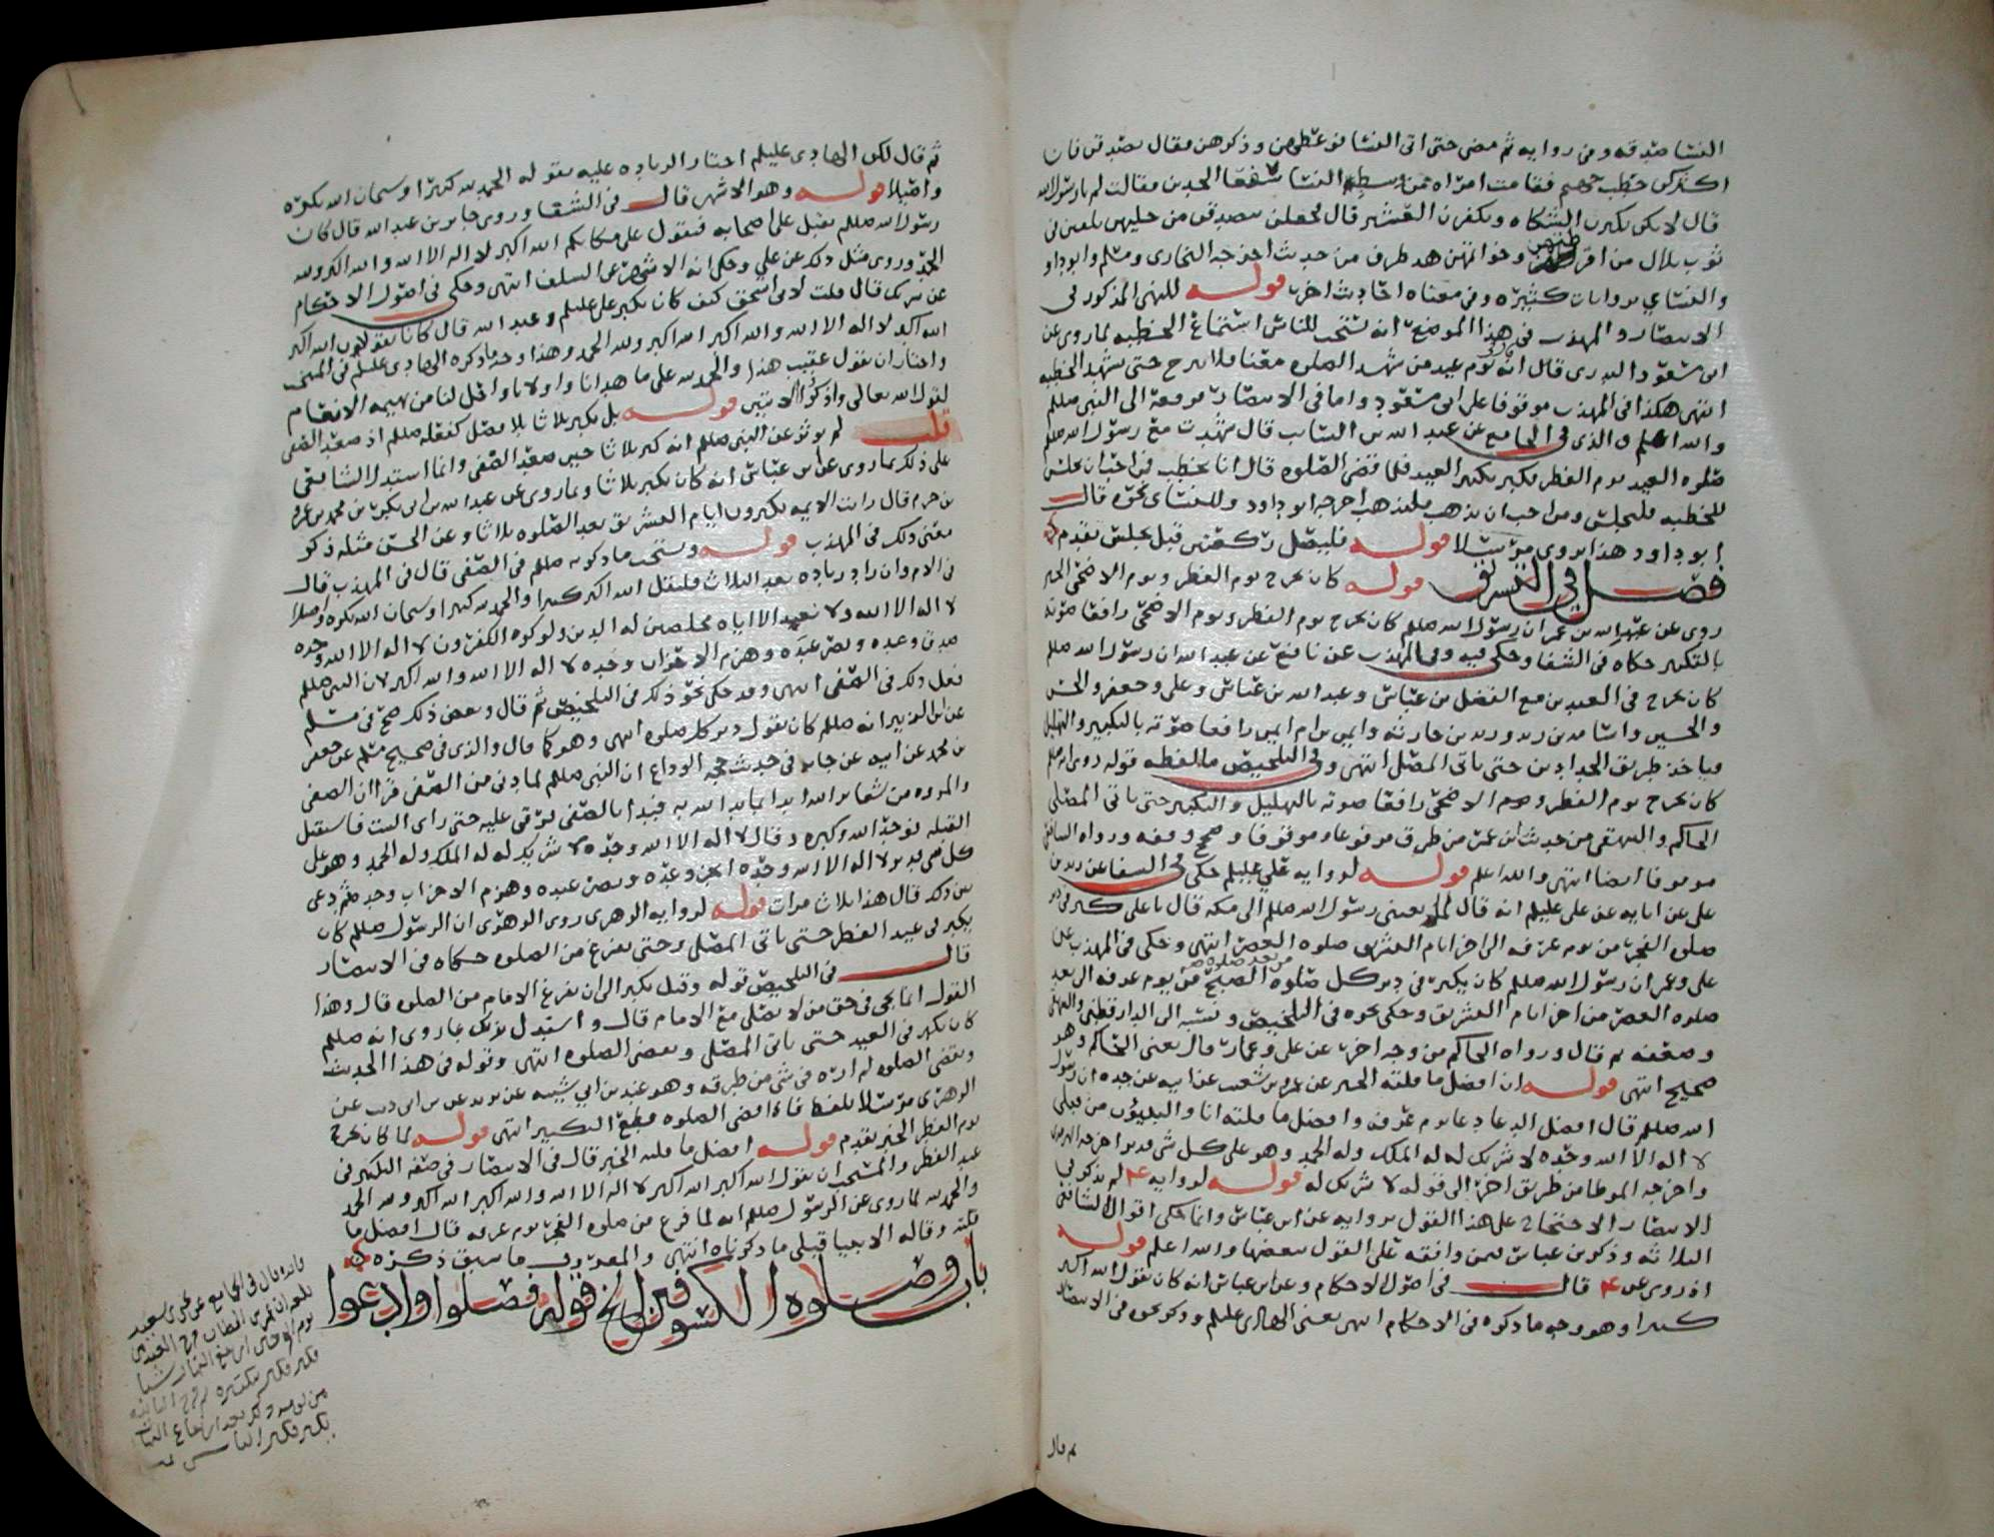 النسا صدقه وفي روايه ثم مضى حتى اتى النسا فوعظهن وذكرهن فقال تصدقن فان
اكثركن حطب جهنم فقامت امراه من وسطه النسا سفعا الخدين فقالت لم يا رسول الله
قال لانكن تكثرن الشكاه وتكفرن العشير قال فجعلن يتصدقن من حليهن يلقين في
ثوب بلال من اقرطهن وخواتمهن هد طرف من حديث اخرجه البخارى ومسلم وابو داود
والنساي بروايات كثيره وفي معناه احاديث اخر قوله للنهي المذكور في
الانتصار والمهذب في هذا الموضع انه تستحب للناس استماع الخطبه لما روى عن
ابي مسعود البدرى قال انه يوم عيد من شهد الصلوه معنا فلا يبرح حتى يشهد الخطبه
انتهى هكذا في المهذب موقوفا على ابي مسعود واما في الانتصار فرفعه الى النبي صللم
والله اعلم والذى في الجامع عن عبد الله بن السايب قال شهدت مع رسول الله صللم
صلوه العيد يوم الفطر فكبر تكبير العيد فلما قضى الصلوه قال انا نخطب فمن احب ان يجلس
للخطبه فليجلس ومن احب ان يذهب فليذهب اخرجه ابو داود وللنساى نحوه قال
ابو داود هذا يروى مرسلا قوله فليصل ركعتين قبل يجلس تقدم
فصل في التشريق قوله كان يخرج يوم الفطر ويوم الاضحى الخبر
روى عن عبد الله بن عمر ان رسول الله صللم كان يخرج يوم الفطر ويوم الاضحى رافعا صوته
بالتكبير حكاه في الشفا وحكى فيه وفي المهذب عن نافع عن عبد الله ان رسول الله صللم
كان يخرج في العيدين مع الفضل بن عباس وعبد الله بن عباس وعلي وجعفر والحسن
والحسين واسامه بن زيد وزيد بن حارثه وايمن بن ام ايمن رافعا صوته بالتكبير والتهليل
وياخذ طريق الحدادين حتى ياتي المصلى انتهى وفي التلخيص ما لفظه قوله روى انه صللم
كان يخرج يوم الفطر ويوم الاضحى رافعا صوته بالتهليل والتكبير حتى ياتي المصلى
الحاكم والبيهقي من حديث ابن عمر من طرق مرفوعا وموقوفا وصحح وقفه ورواه الشافعي
موقوفا ايضا انتهى والله اعلم قوله لروايه علي عليلم حكى في الشفا عن زيد بن
علي عن ابايه عن علي عليلم انه قال لي يعني رسول الله صللم الى مكه قال يا علي كبر في دبر
صلوه الفجر من يوم عرفه الى اخر ايام التشريق صلوه العصر انتهى وحكى في المهذب عن
علي وعمر ان رسول الله صللم كان يكبر في دبر كل صلوه الصبح من يوم عرفه الى بعد
صلوه العصر من اخر ايام التشريق وحكى نحوه في التلخيص ونسبه الى الدارقطني والبيهقي
وضعفه ثم قال ورواه الحاكم من وجه اخر عن علي وعمار قال يعني الحاكم وهو
صحيح انتهى قوله ان افضل ما قلته الخبر عن عمرو بن شعيب عن ابيه عن جده ان رسول
الله صللم قال افضل الدعا دعا يوم عرفه وافضل ما قلته انا والنبيون من قبلي
لا اله الا الله وحده لا شريك له له الملك وله الحمد وهو على كل شي قدير اخرجه الترمذى
واخرجه الموطا من طريق اخر الى قوله لا شريك له قوله لروايه ع لم يذكر في
الانتصار الاحتجاج على هذا القول بروايه عن ابن عباس وانما حكى اقوال الشافعي
الثلاثه وذكر بن عباس فيمن وافقه على القول ببعضها والله اعلم قوله
اذ روى عن ع قال في اصول الاحكام وعن ابن عباس انه كان يقول الله اكبر
كبيرا وهو وجه ما ذكره في الاحكام انتهى يعنى الهادى عليلم وذكر نحوه في الانتصار
ثم قال
ثم قال لكن الهادى عليلم اختار الزياده عليه بقوله الحمد لله كثيرا وسبحان الله بكره
واصيلا قوله وهو الاشهر قال في الشفا وروى جابر بن عبد الله قال كان
رسول الله صللم يقبل على اصحابه فيقول على مكانكم الله اكبر لا اله الا الله والله اكبر ولله
الحمد وروى مثل ذلك عن علي وحكى انه الاشهر عن السلف انتهى وحكى في اصول الاحكام
عن شريك قال قلت لابي اسحق كيف كان يكبر علي عليلم وعبد الله قال كانا يقولان الله اكبر
الله اكبر لا اله الا الله والله اكبر الله اكبر ولله الحمد وهذا وجه ما ذكره الهادى عليلم في المنتخب
واختار ان يقول عقيب هذا والحمد لله على ما هدانا واولانا واحل لنا من بهيمه الانعام
لقول الله تعالى واذكروا الايتين قوله بل يكبر ثلاثا بلا فصل كفعله صللم اذ صعد الصفى
قلت لم يوثر عن النبي صللم انه كبر ثلاثا حين صعد الصفى وانما استدل الشافعي
على ذلك بما روى عن ابن عباس انه كان يكبر ثلاثا وبما روى عن عبد الله بن ابي بكر بن محمد بن عمرو
بن حزم قال رايت الايمه يكبرون ايام التشريق بعد الصلوه ثلاثا وعن الحسن مثله ذكر
معنى ذلك في المهذب قوله ويستحب ما ذكره صللم في الصفى قال في المهذب قال
في الام وان زاد زياده بعد الثلاث فليقل الله اكبر كبيرا والحمد لله كثيرا وسبحان الله بكره واصيلا
لا اله الا الله ولا نعبد الا اياه مخلصين له الدين ولو كره الكفرون لا اله الا الله وحده
صدق وعده ونصر عبده وهزم الاحزاب وحده لا اله الا الله والله اكبر لان النبي صللم
فعل ذلك في الصفى انتهى وقد حكى نحو ذلك في التلخيص ثم قال وبعض ذلك صح في مسلم
عن ابن الزبير انه صللم كان يقول دبر كل صلوه انتهى وهو كما قال والذى في صحيح مسلم عن جعفر
بن محمد عن ابيه عن جابر في حديث حجه الوداع ان النبي صللم لما دنى من الصفى قرا ان الصفى
والمروه من شعاير الله ابدا بما بدا الله به فبدا بالصفى فرقي عليه حتى راى البيت فاستقبل
القبله فوحد الله وكبره وقال لا اله الا الله وحده لا شريك له له الملك وله الحمد وهو على
كل شي قدير لا اله الا الله وحده انجز وعده ونصر عبده وهزم الاحزاب وحده ثم دعى
بين ذلك قال هذا ثلاث مرات قوله لروايه الزهرى روى الزهرى ان الرسول صللم كان
يكبر في عيد الفطر حتى ياتي المصلى وحتى يفرغ من الصلوه حكاه في الانتصار
قال في التلخيص قوله وقيل يكبر الى ان يفرغ الامام من الصلوه قال وهذا
القول انما يجي في حق من لا يصلي مع الامام قال واستدل لذلك بما روى انه صللم
كان يكبر في العيد حتى ياتي المصلى ويقضي الصلوه انتهى وقوله في هذا الحديث
ويقضي الصلوه لم اره في شي من طرقه وهو عند بن ابي شيبه عن يزيد عن بن ابي ذيب عن
الزهرى مرسلا بلفظ فاذا قضى الصلوه قطع التكبير انتهى قوله لما كان يخرج
يوم الفطر الخبر تقدم قوله افضل ما قلته الخبر قال في الانتصار في صفه التكبير في
عيد الفطر والمستحب ان يقول الله اكبر الله اكبر لا اله الا الله والله اكبر الله اكبر ولله الحمد
والحمد لله لما روى عن الرسول صللم انه لما فرغ من صلوه الفجر يوم عرفه قال افضل ما
قلته وقاله الانبيا قبلي ما ذكرناه انتهى والمعروف ما سبق ذكره
باب وصلوه الكسوفين الخ قوله فصلوا وادعوا
فايده قال في الجامع عن يحيى بن سعيد
بلغه ان عمر بن الخطاب خرج الغد من
يوم النحر حين ارتفع النهار شيا
فكبر فكبر الناس بتكبيره ثم خرج الثانيه
من يومه ذلك بعد ارتفاع النهار
فكبر فكبر الناس